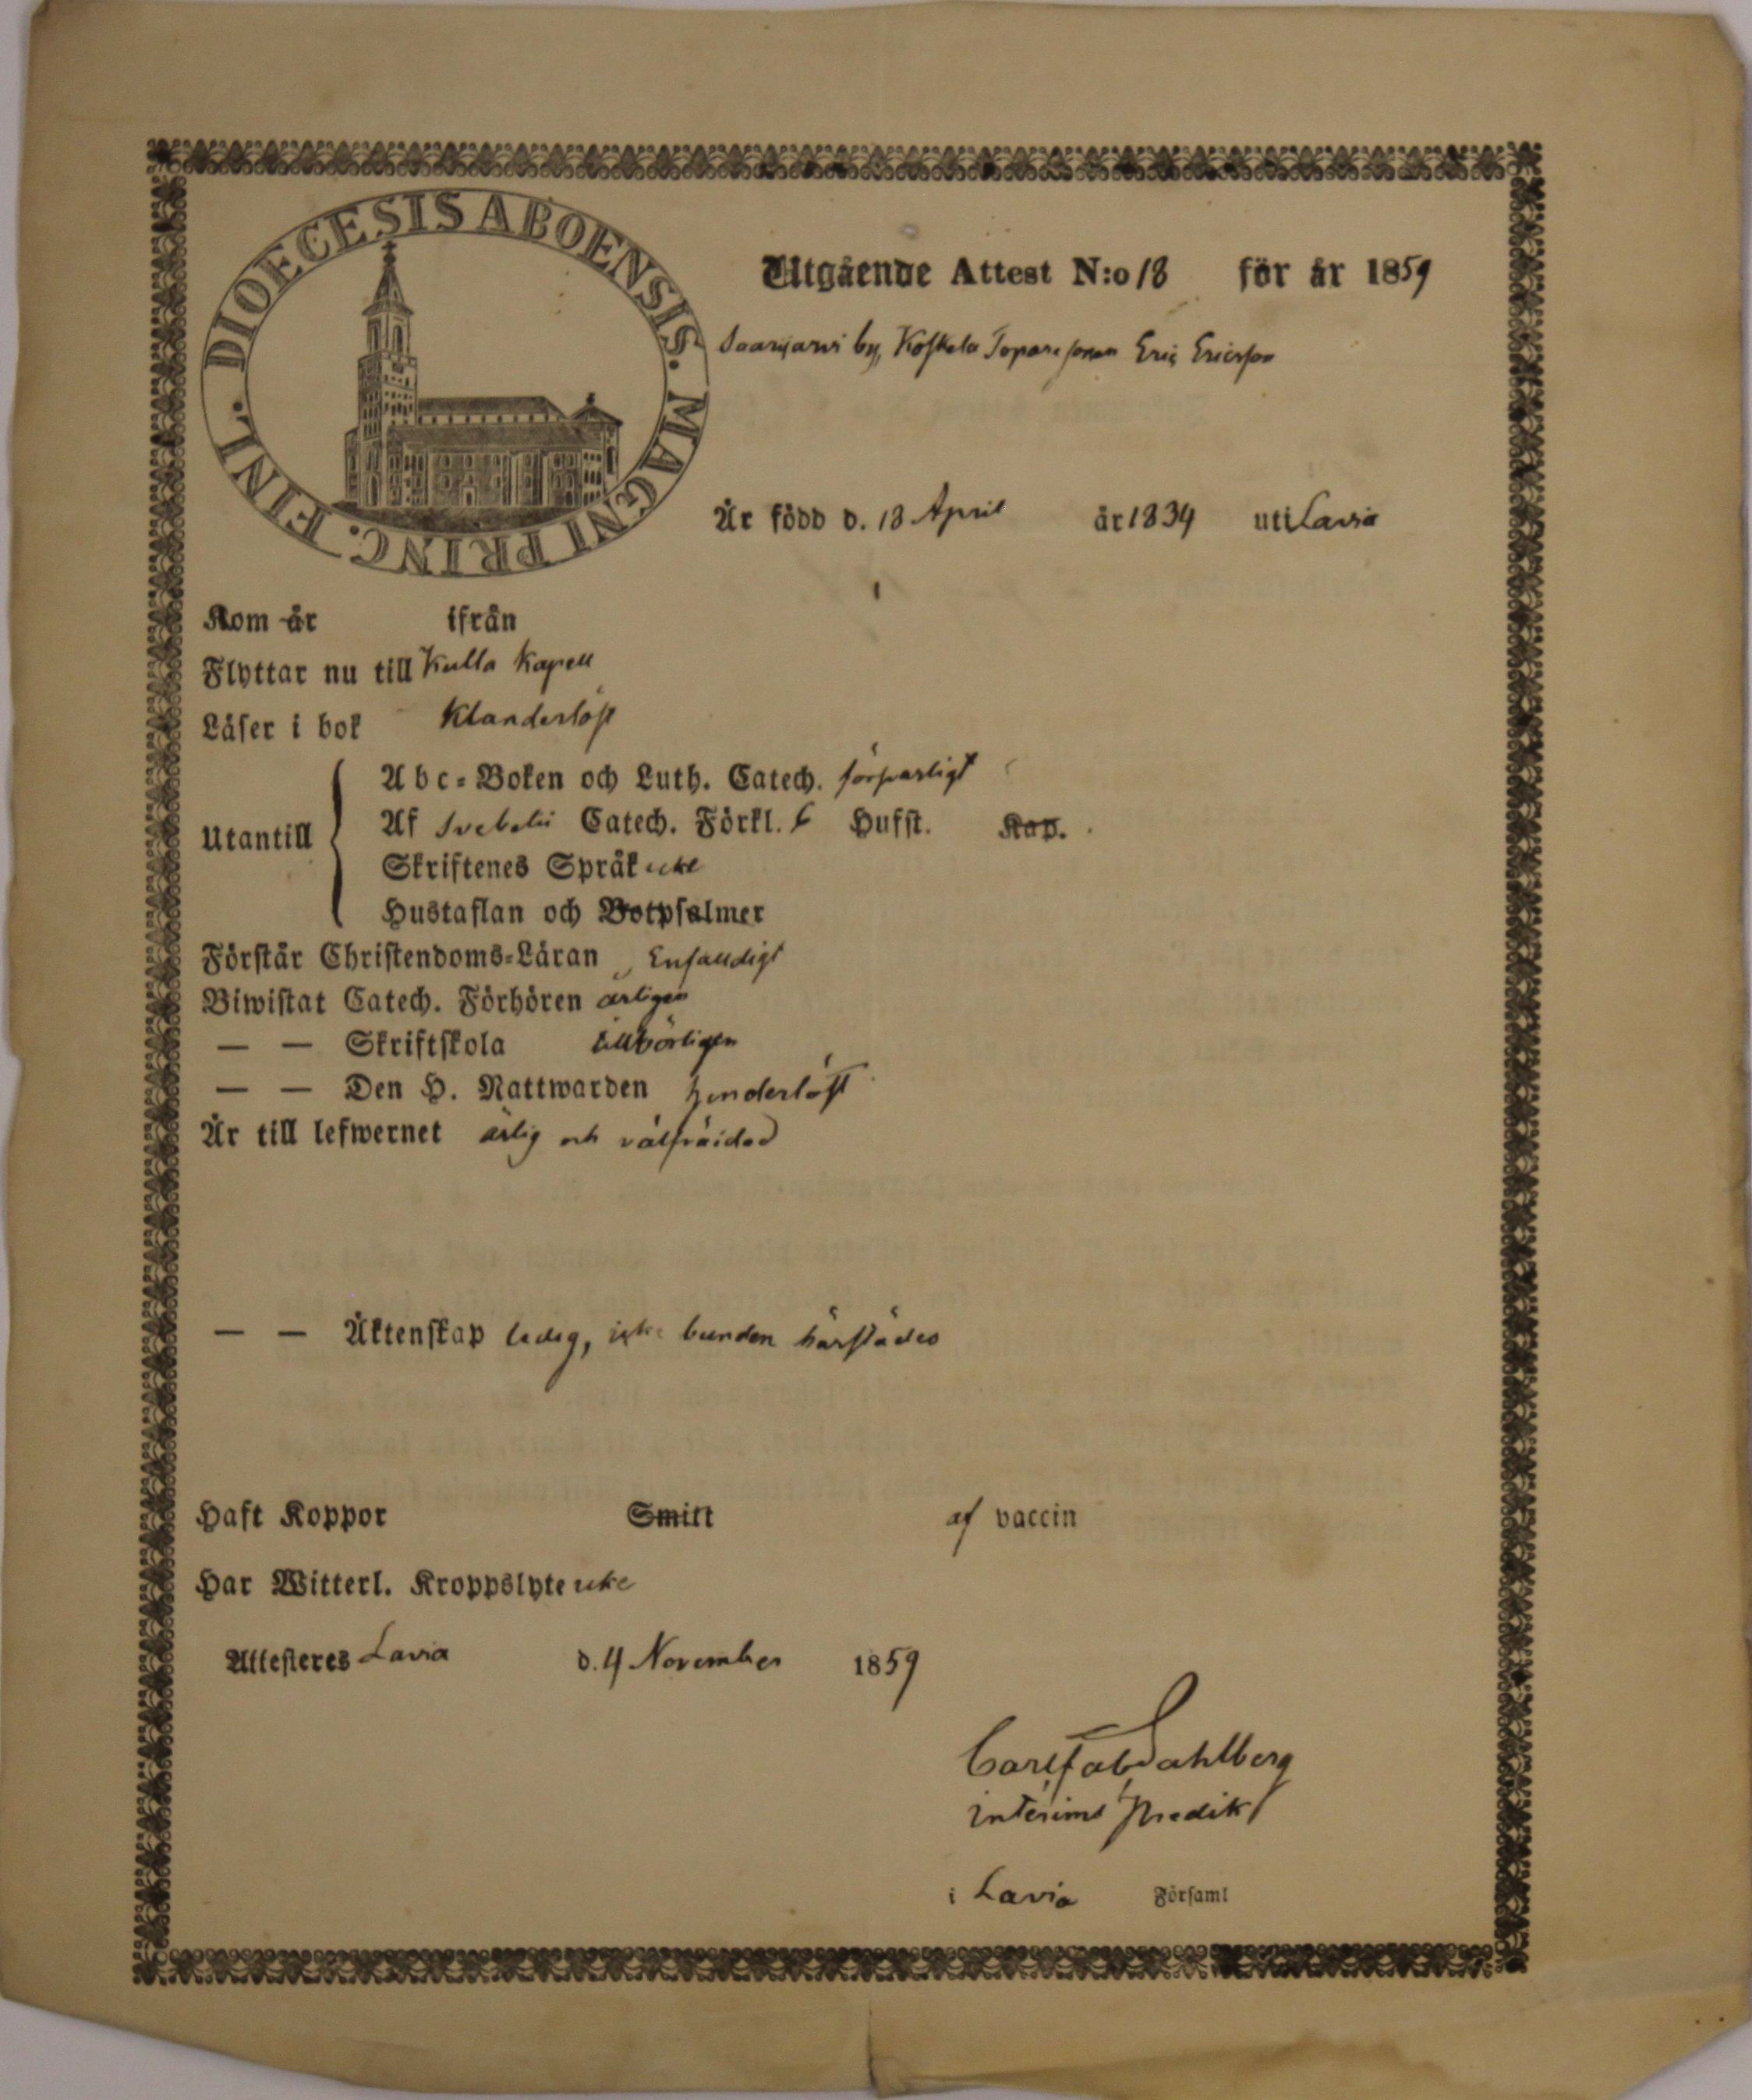 DIOECESIS ABOENSIS. MAGNI PRINC. FINL.
Utgående Attest N:o 18 för år 1859
Saarijarvi by, Koskela Eric Ericsson
Är född d. 18 April år 1834 uti Lavia
Kom år ifrån
Flyttar nu till Kulla Kapell
Läser i bok Klanderlöst
Utantill
Abc-Boken och Luth. Catech. försvarligt
Af Svebelii Catech. Förkl. 6 Hufst. Kap.
Skriftenes Språk icke
Hustaflan och Botpsalmer
Förstår Christendoms-Läran Enfaldigt
Biwistat Catech. Förhören årligen
— — Skriftskola tillbörligen
— — Den H. Nattwarden hinderlöst
Är till lefwernet ärlig och välfräjdad
— — Äktenskap ledig, icke bunden härstädes
Haft Koppor Smitt af vaccin
Har Witterl. Kroppslyte icke
Attesteres Lavia d. 4 November 1859
Carl Fab Dahlberg
interims Predik
i Lavia Församl